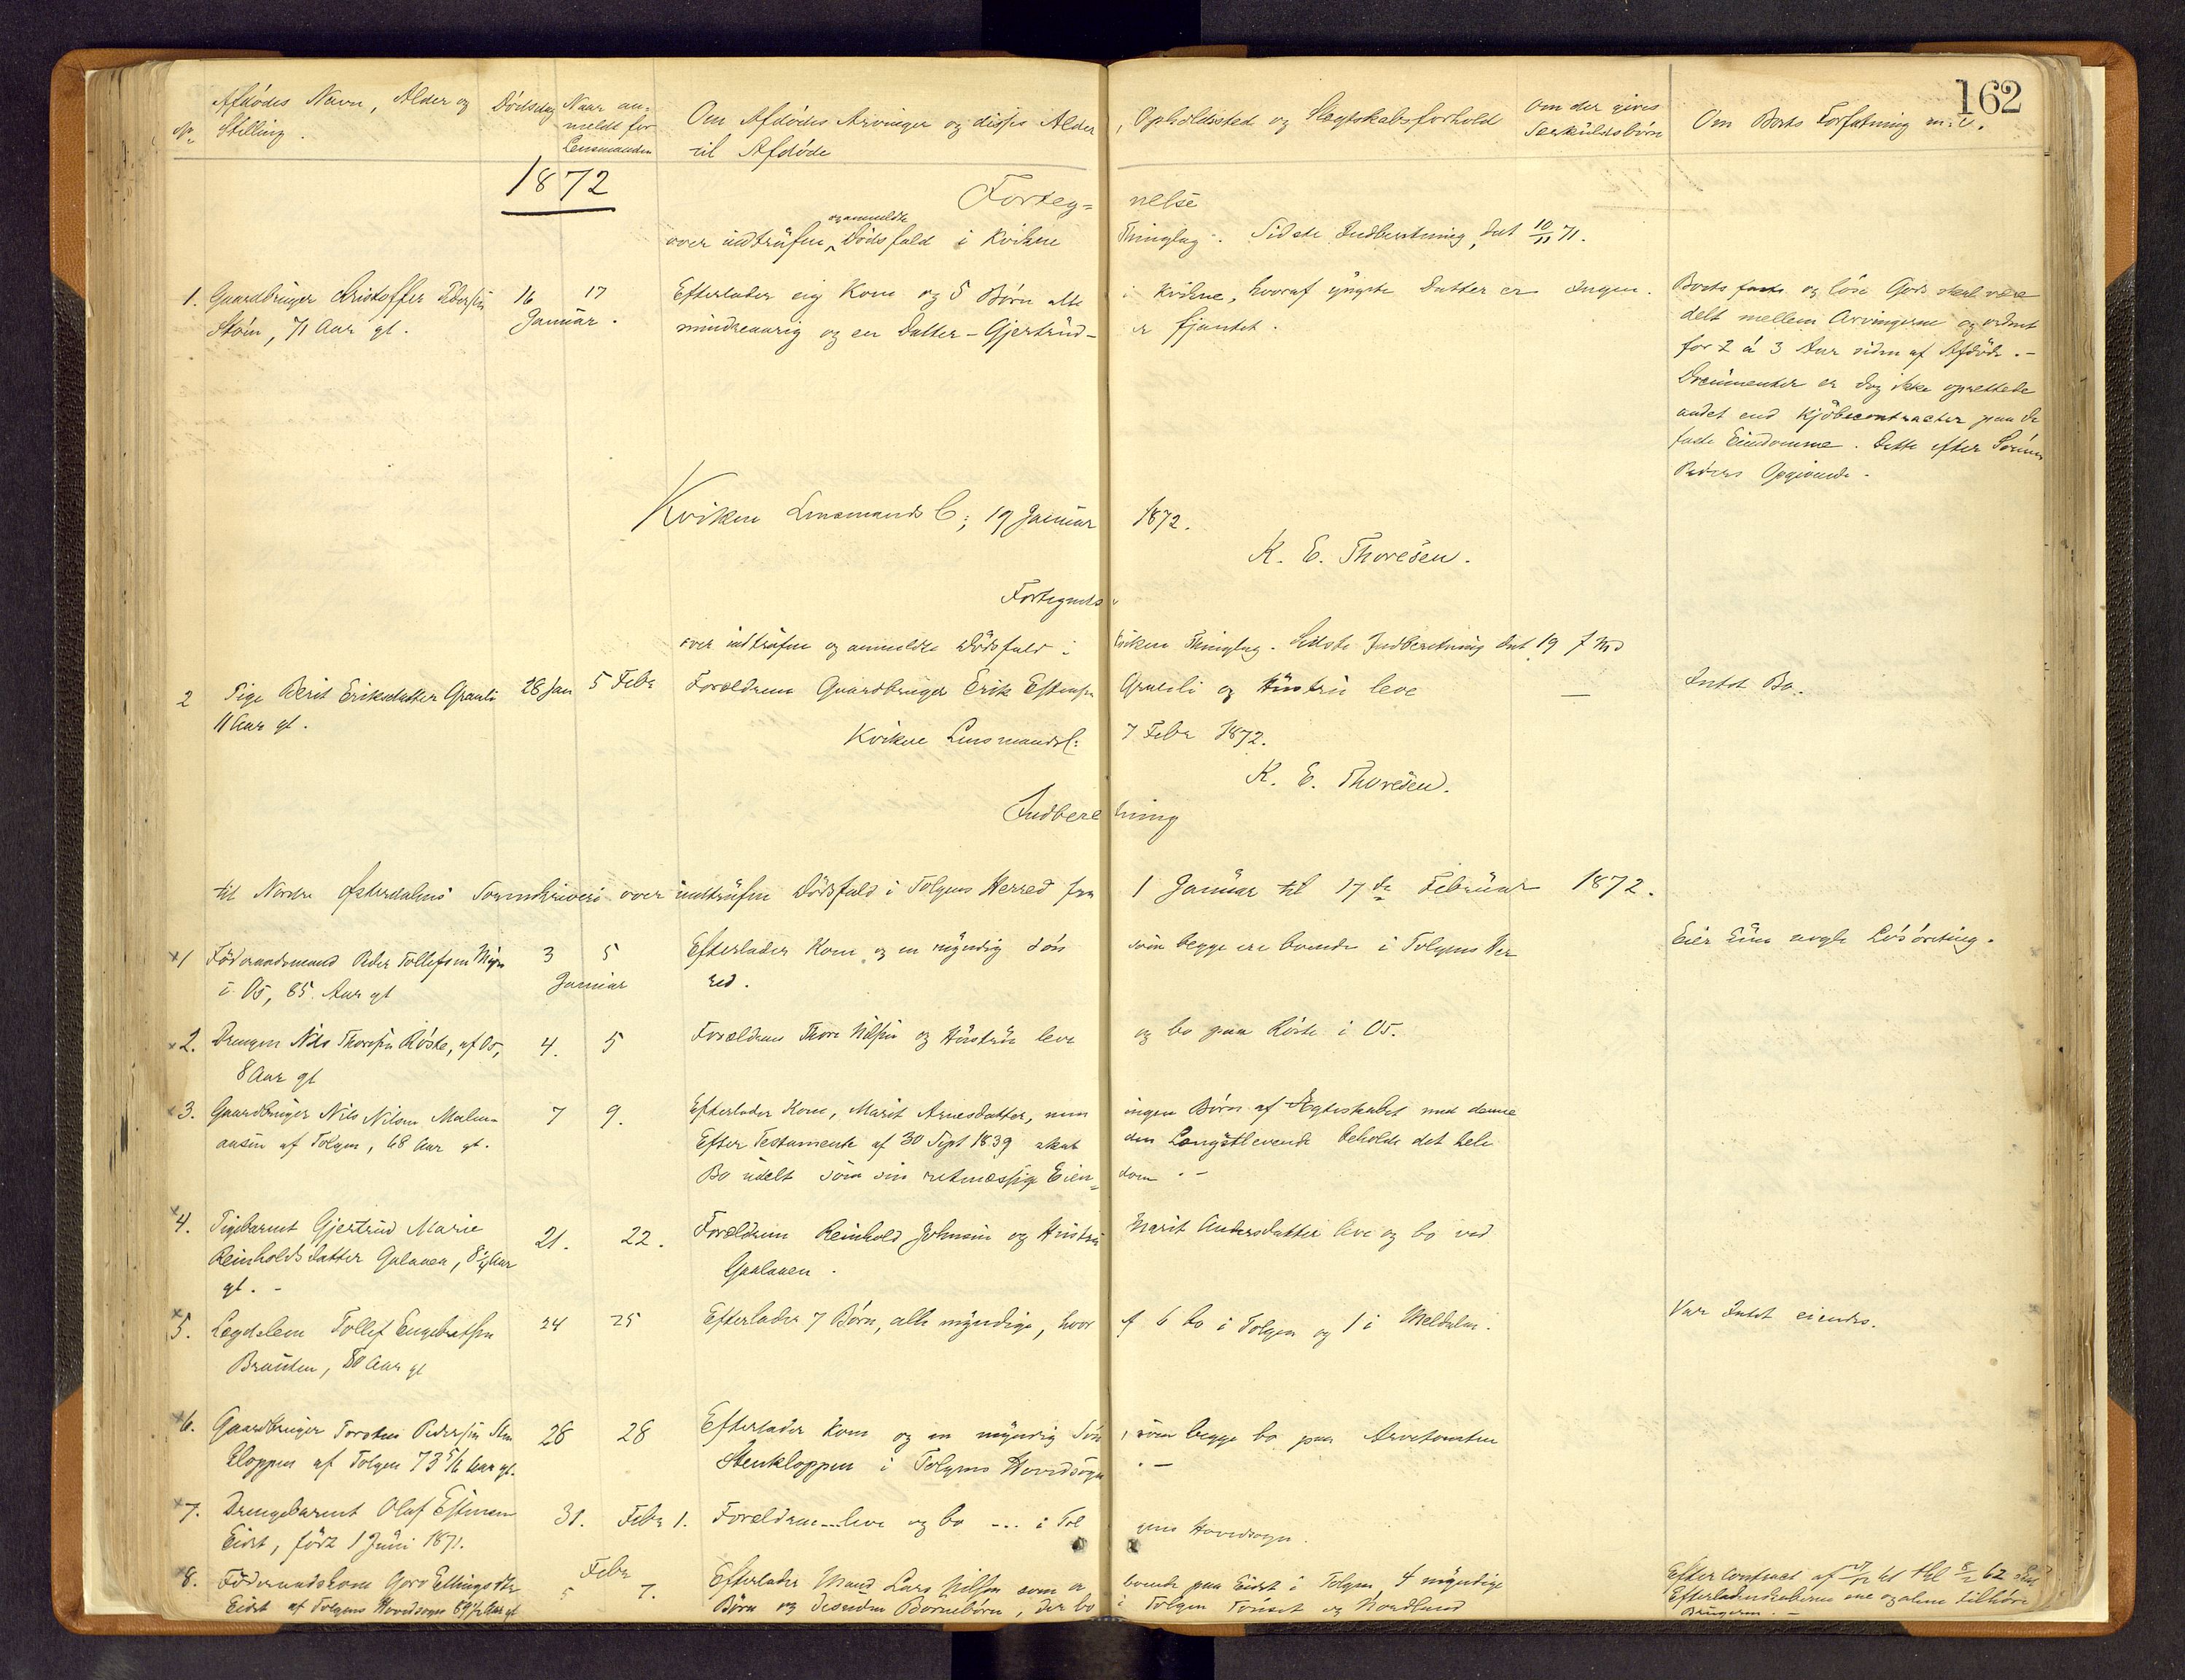 162
Afdødes Navn, Alder og
No Stilling.
Dødsdag
Naar an-
meldt for
Lensmanden
Om Afdødes Arvinger og disses Alder, Opholdssted og Slegtskabsforhold
til Afdøde
Om der gives
Særkuldsbørn
Om Boets Forfatning m. v.
1872
Forteg= nelse
over indtrufne og anmeldte Dødsfald i Kvikne Thinglag. Sidste Indberetning dat 10/11 71.
1. Gaardbruger Christoffer Pedersen
Støen, 71 Aar gl.
16 17
Januar.
Efterlader sig Kone og 5 Børn alle i Kvikne, hvoraf yngste Datter er
mindreaarig og en Datter - Gjertrud - er fjantet.
Ingen.
Boets faste og løse Gods skal være
delt mellem Arvingerne og ordnet
for 2 á 3 Aar siden af Afdøde. -
Documenter er dog ikke oprettede
andet end Kjøbecontracter paa de
faste Eiendomme. Dette efter Sønnen
Peders Opgivende -
Kvikne Lensmands C; 19 Januar 1872.
K. E. Thoresen.
Fortegnelse
over indtrufne og anmeldte Dødsfald i Kvikne Thinglag. Sidste Indberetning dat 19 f Md
2 Pige Berit Eriksdatter Grauli
11 Aar gl.
28 Jan 5 Febr
Forældrene Gaardbruger Erik Estensen Grauli og Hustru leve
—
Intet Bo.
Kvikne Lensmandsc: 7 Febr 1872.
K. E. Thoresen.
Indberetning
til Nordre Østerdalens Sorenskriveri over indtrufne Dødsfald i Tolgens Herred fra 1 Januar til 17de Februar 1872.
x1 Føderaadsmand Peder Tollefsen Myen
i Os, 85 Aar gl
3 5
Januar
Efterlader Kone og en myndig Søn som begge ere boende i Tolgens Her
red.
Eier kun nogle Løsøreting.
x2. Drengen Nils Thoresen Røste, af Os,
8 Aar gl
4. 5
Forældrene Thore Nilsen og Hustru leve og bo paa Røste i Os.
x3. Gaardbruger Nils Nilsen Malm-
aasen af Tolgen, 68 Aar gl.
7 9.
Efterlader Kone, Marit Arnesdatter, men ingen Børn af Ægteskabet med denne
Efter Testamente af 30 Sept 1839 skal den Længstlevende beholde det hele
Bo udelt som sin retmæssige Eien= dom. -
x4. Pigebarnet Gjertrud Marie
Reinholdsdatter Galaaen, 8 1/4 Aar
gl. -
21. 22.
Forældrene Reinhold Johnsen og Hustru Marit Andersdatter leve og bo ved
Gaalaaen.
x5. Lægdslem Tollef Engebretsen
Brauten, 80 Aar gl
24 25
Efterlader 7 Børn, alle myndige, hvor af 6 bo i Tolgen og 1 i Meldalen.
Var Intet eiendes.
x6. Gaardbruger Torsten Pedersen Sten
kloppen af Tolgen 73 5/6 Aar gl.
26 28
Efterlader Kone og en myndig Søn, som begge bo paa Arvetomten
Stenkloppen i Tolgens Hovedsogn. -
x7. Drengebarnet Olaf Estensen
Eidet, født 1 Juni 1871.
31. Febr 1.
Forældrene -- leve og bo --- i Tol gens Hovedsogn.
x8. Føderaadskone Goro Ellingsdtr
Eidet af Tolgens Hovedsogn 69 1/2 Aar gl
Febr
5 7.
Efterlader Mand Lars Nilsen som er boende paa Eidet i Tolgen, 4 myndige
Børn og desuden Børnebørn, der bo i Tolgen Tønset og Nordland
Efter Contract af
Efterladenskaberne ene og alene tilhøre
Brugeren. -